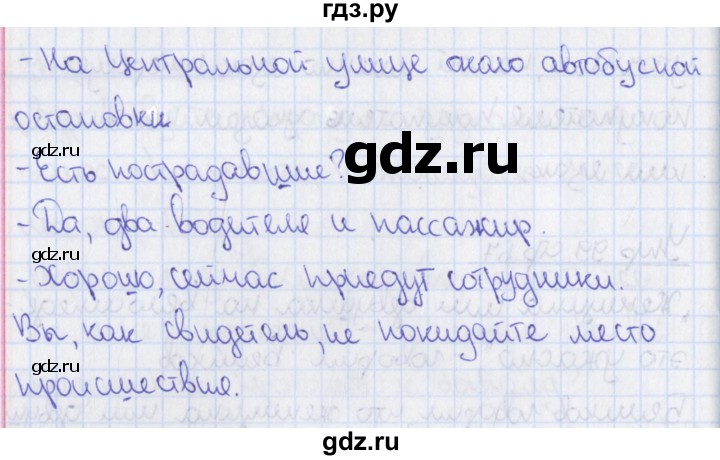 гдз.ру
- На Центральной улице около автобусной
остановки.
gdz.ru
gdz.ru
- Есть пострадавшие?
gdz.ru
- Да, два водителя и пассажир.
gdz.ru
gdz.ru
- Хорошо, сейчас приедут сотрудники.
Вы, как свидетель, не покидайте место
gdz.ru
gdz.ru
происшествия.
gdz.ru